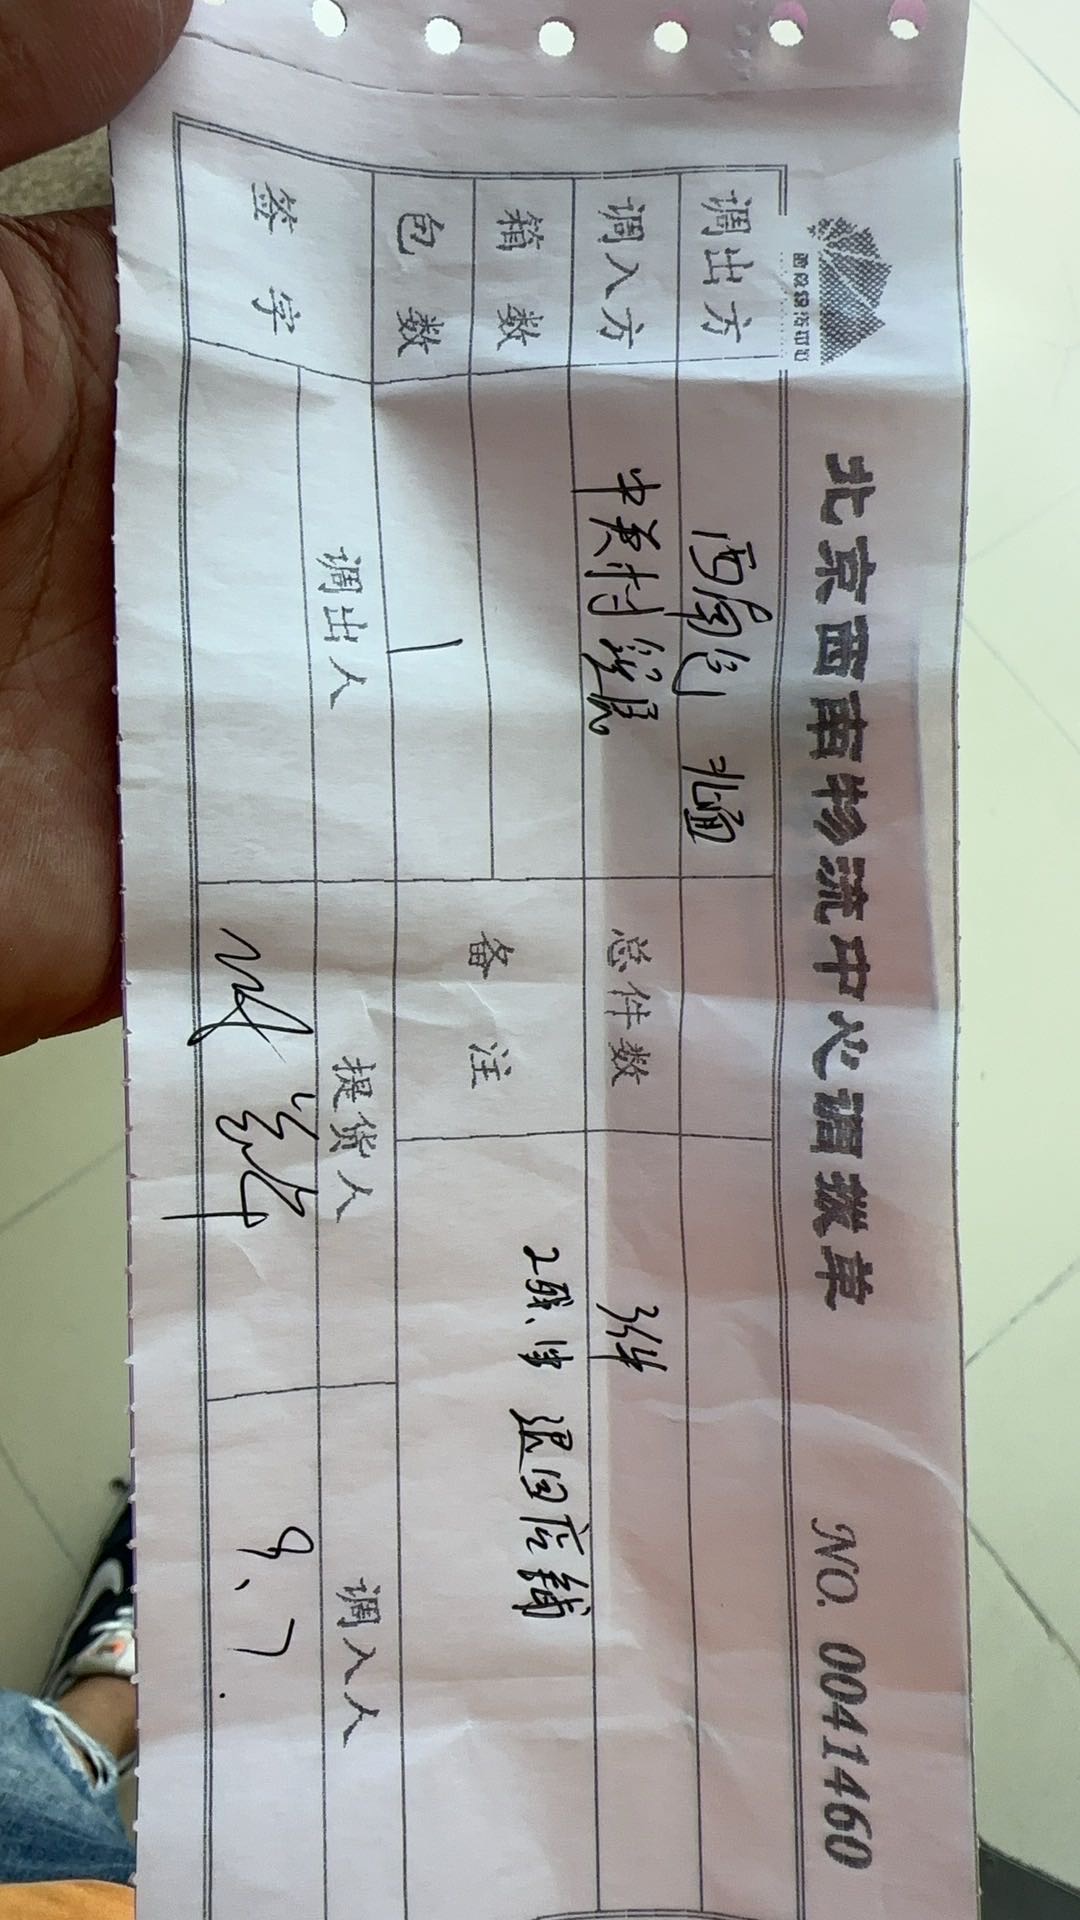 北京西南物流中心调拨单 NO. 0041460
调出方 北
调入方 中关村 总件数 3件
箱数
包数 1 备注 退回店铺
签字 调出人 提货人 调入人
9、7